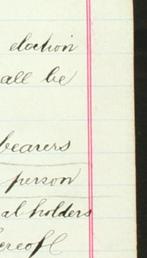 election
all be
bearers
person
al holders
ereof